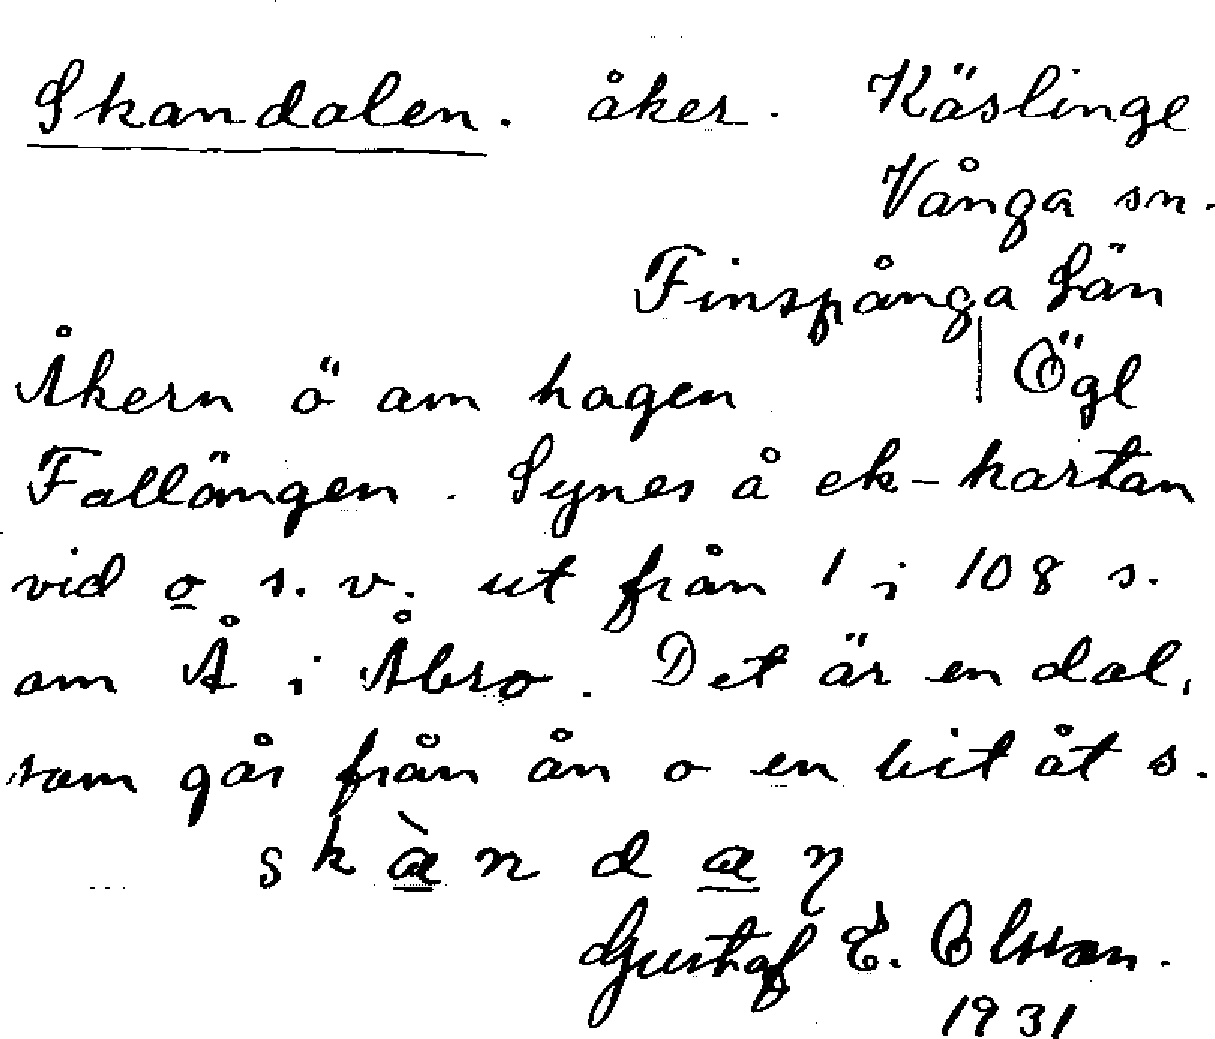 Skandalen. åker. Käslinge
Vånga sn.
Finspånga län
Ögl
Åkern ö om hagen
Fallängen. Synes å ek-kartan
vid o s. v. ut från 1 i 108 s.
om Å i Åbro. Det är en dal,
som går från ån o en bit åt s.
skæ̀ndæ
Gustaf E. Olsson.
1931